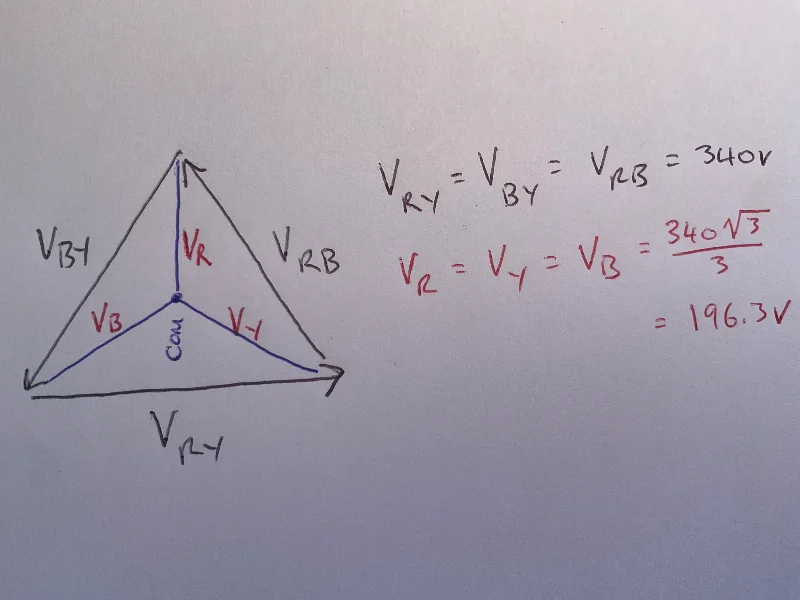 V_BY
V_R
V_RB
V_B
V_Y
COM
V_RY
V_RY = V_BY = V_RB = 340V
V_R = V_Y = V_B = 340√3/3
= 196.3V